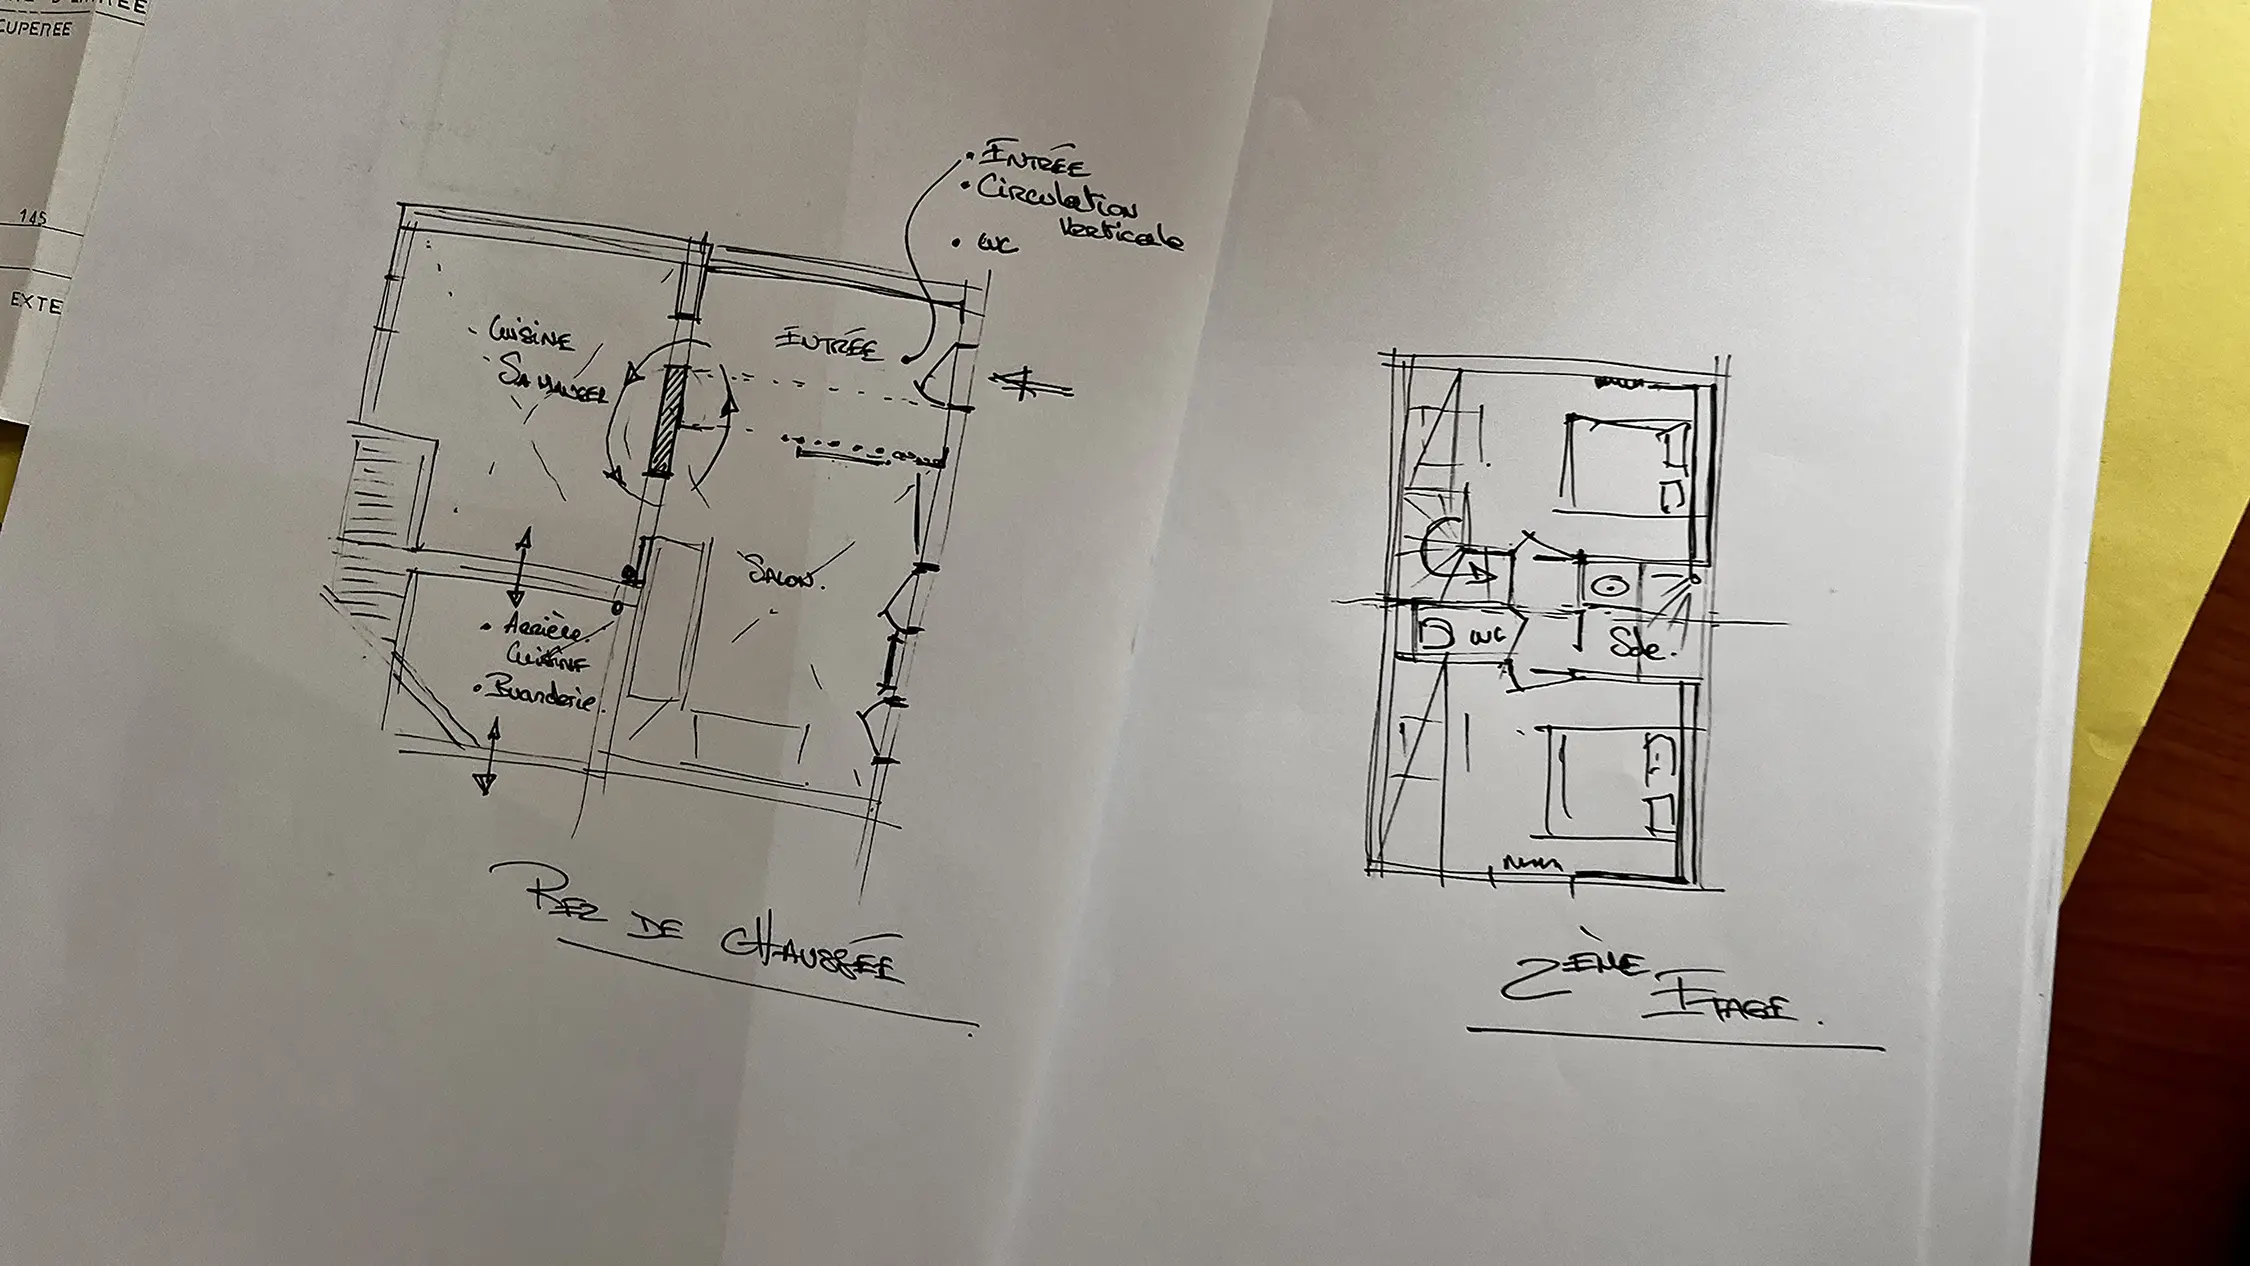 CUPEREE
145
EXTE
• ENTRÉE
• CIRCULATION
VERTICALE
• WC
CUISINE
SA MANGER
ENTRÉE
SALON.
• Arrière
CUISINE
• Buanderie.
REZ DE CHAUSSÉE
WC
Sde.
2ÈME ETAGE.